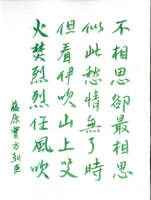 不相思卻最相思
似此愁情無了時
但看伊吹山上艾
火焚烈烈任風吹
藤原實方朝臣